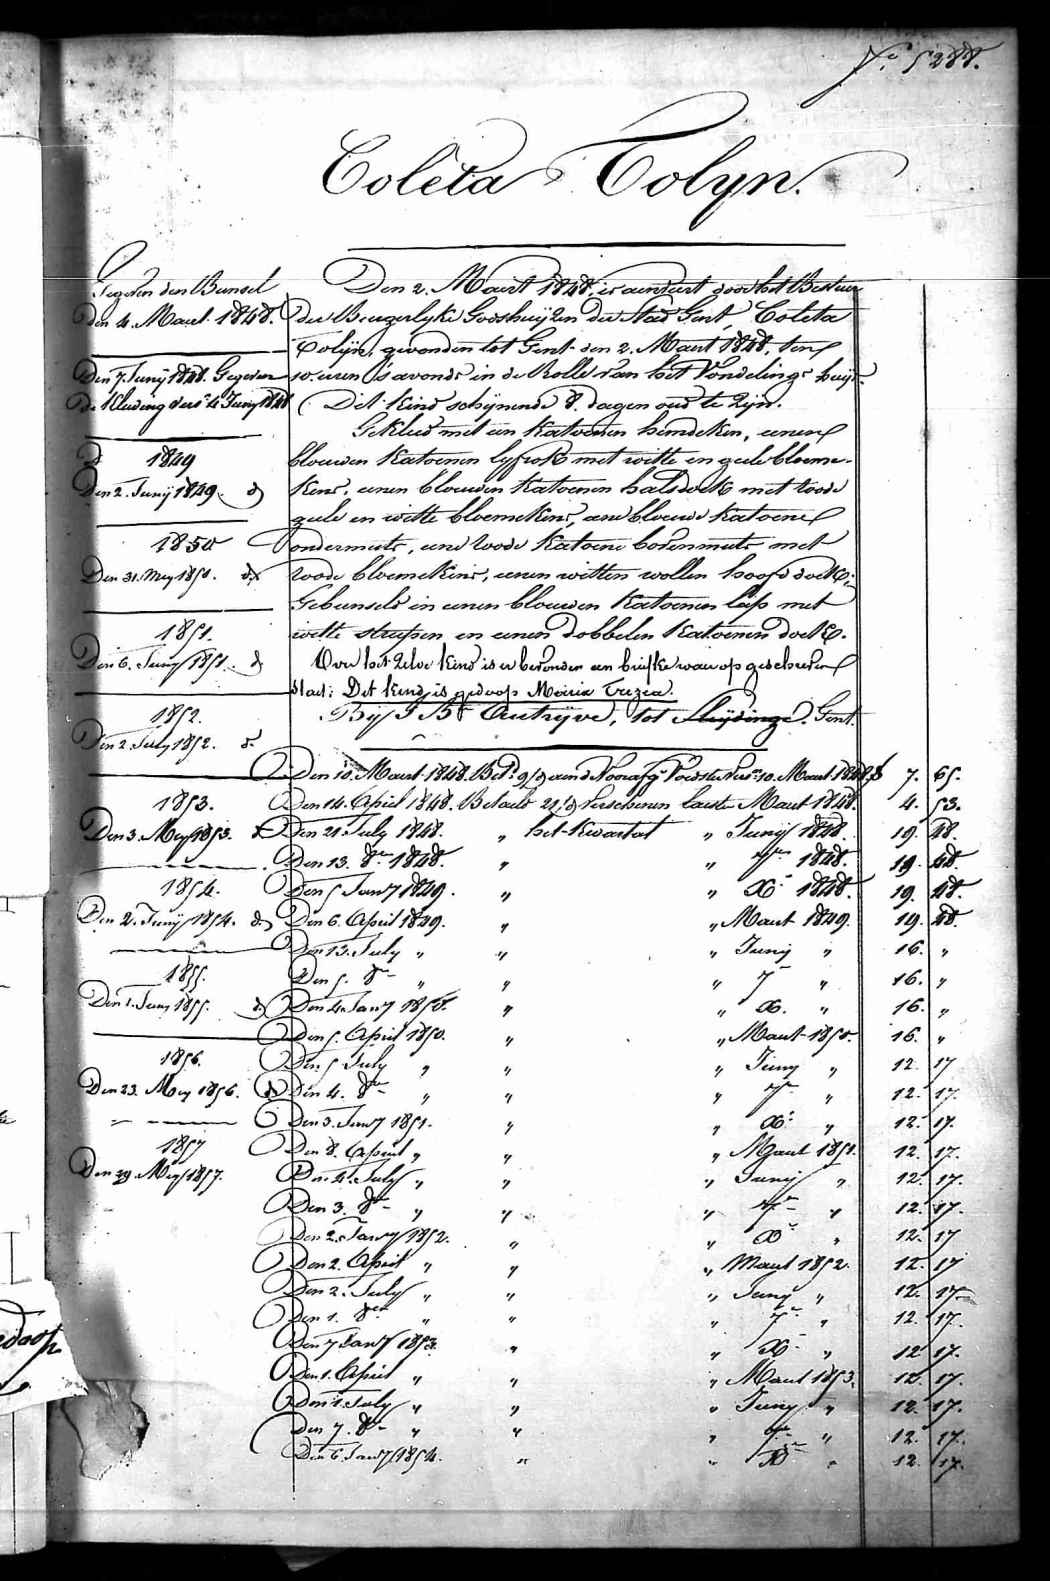 N.º 5288.
Coleta Tolyn.
Gegeven den Bunsel
den 4. Maert 1848.
Den 7. Junij 1848. Gegeven
de Kleeding vers. 1e Junij 1848
1849
Den 2. Junij 1849. d
1850
Den 31. Mey 1850. d
1851.
Den 6. Juny 1851. d
1852.
Den 2. July 1852. d.
1853.
Den 3. Mey 1853. d
1854.
Den 2. Junij 1854. d
1855.
Den 1. Juny 1855. d
1856.
Den 23. Mey 1856. d
1857
Den 29. Mey 1857.
Den 2. Maert 1848. is aenveert door het Bestuur
der Burgerlyke Godshuijzen der Stad Gent, Coleta
Tolijn, gevonden tot Gent den 2. Maert 1848, ten
10. uren s'avonds in de Rolle van het Vondelings huijs.
Dit kind schijnende 8. dagen oud te zijn.
Gekleed met een katoenen hemdeken, eenen
blouwen katoenen lyfrok met witte en geele bloeme-
kens, eenen blouwen katoenen halsdoek met roode
geele en witte bloemekens, eene blouwe katoene
ondermuts, eene roode katoene bovenmuts met
roode bloemekens, eenen witten wollen hoofddoek;
Gebunseld in eenen blouwen katoenen lap met
witte streepen en eenen dobbelen katoenen doek.
Over het zelve kind is er bevonden een briefke waer op geschreven
staet: Det kend is gedoop Maria Trezea.
Bij J. Bte Autrijve, tot Sleydinge. Gent.
Den 10. Maert 1848. Bet. 9/d aen d. Voorafg. Voedster vers. 10. Maert 1848. f 7. 65.
Den 14. April 1848. Betaeld 21/d verschenen laeste Maert 1848. 4. 53.
Den 21. July 1848. " het kwartael " Junij 1848. 19. 48.
Den 13. 8er 1848. " " 7er 1848. 19. 48.
Den 5 Janry 1849. " " Xr 1848. 19. 48.
Den 6. April 1849. " " Maert 1849. 19. 48.
Den 13. July " " " Junij " 16. "
Den 5. 8er " " " 7r " 16. "
Den 4. Janry 1850. " " X. " 16. "
Den 5. April 1850. " " Maert 1850. 16. "
Den 5 July " " " Juny " 12. 17
Den 4. 8er " " " 7er " 12. 17.
Den 3. Janry 1851. " " Xr " 12. 17.
Den 8. April " " " Maert 1851. 12. 17.
Den 4. July " " " Junij " 12. 17.
Den 3. 8er " " " 7er " 12. 17.
Den 2. Janry 1852. " " Xr " 12. 17
Den 2. April " " " Maert 1852. 12. 17
Den 2. July " " " Juny " 12. 17
Den 1. 8er " " " 7r " 12. 17.
Den 7 Janry 1853. " " Xr " 12 17.
Den 1. April " " " Maert 1853. 12. 17.
Den 1. July " " " Juny " 12. 17.
Den 7. 8er " " " 7er " 12. 17.
Den 6. Janry 1854. " " Xr " 12. 17.